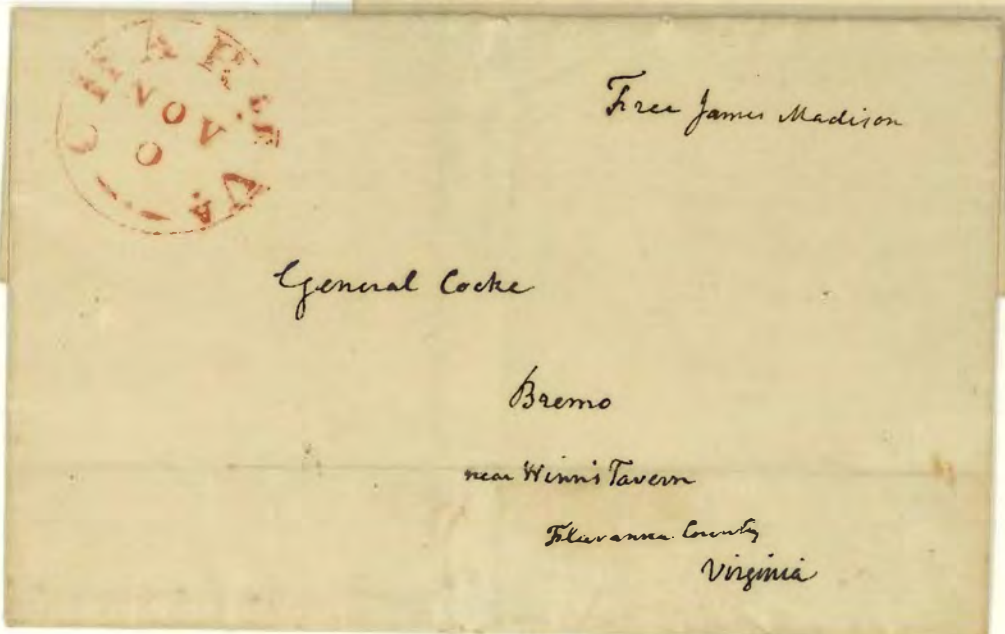 CHARL VA
NOV
Free James Madison
General Cocke
Bremo
near Winn's Tavern
Fluvanna County
Virginia